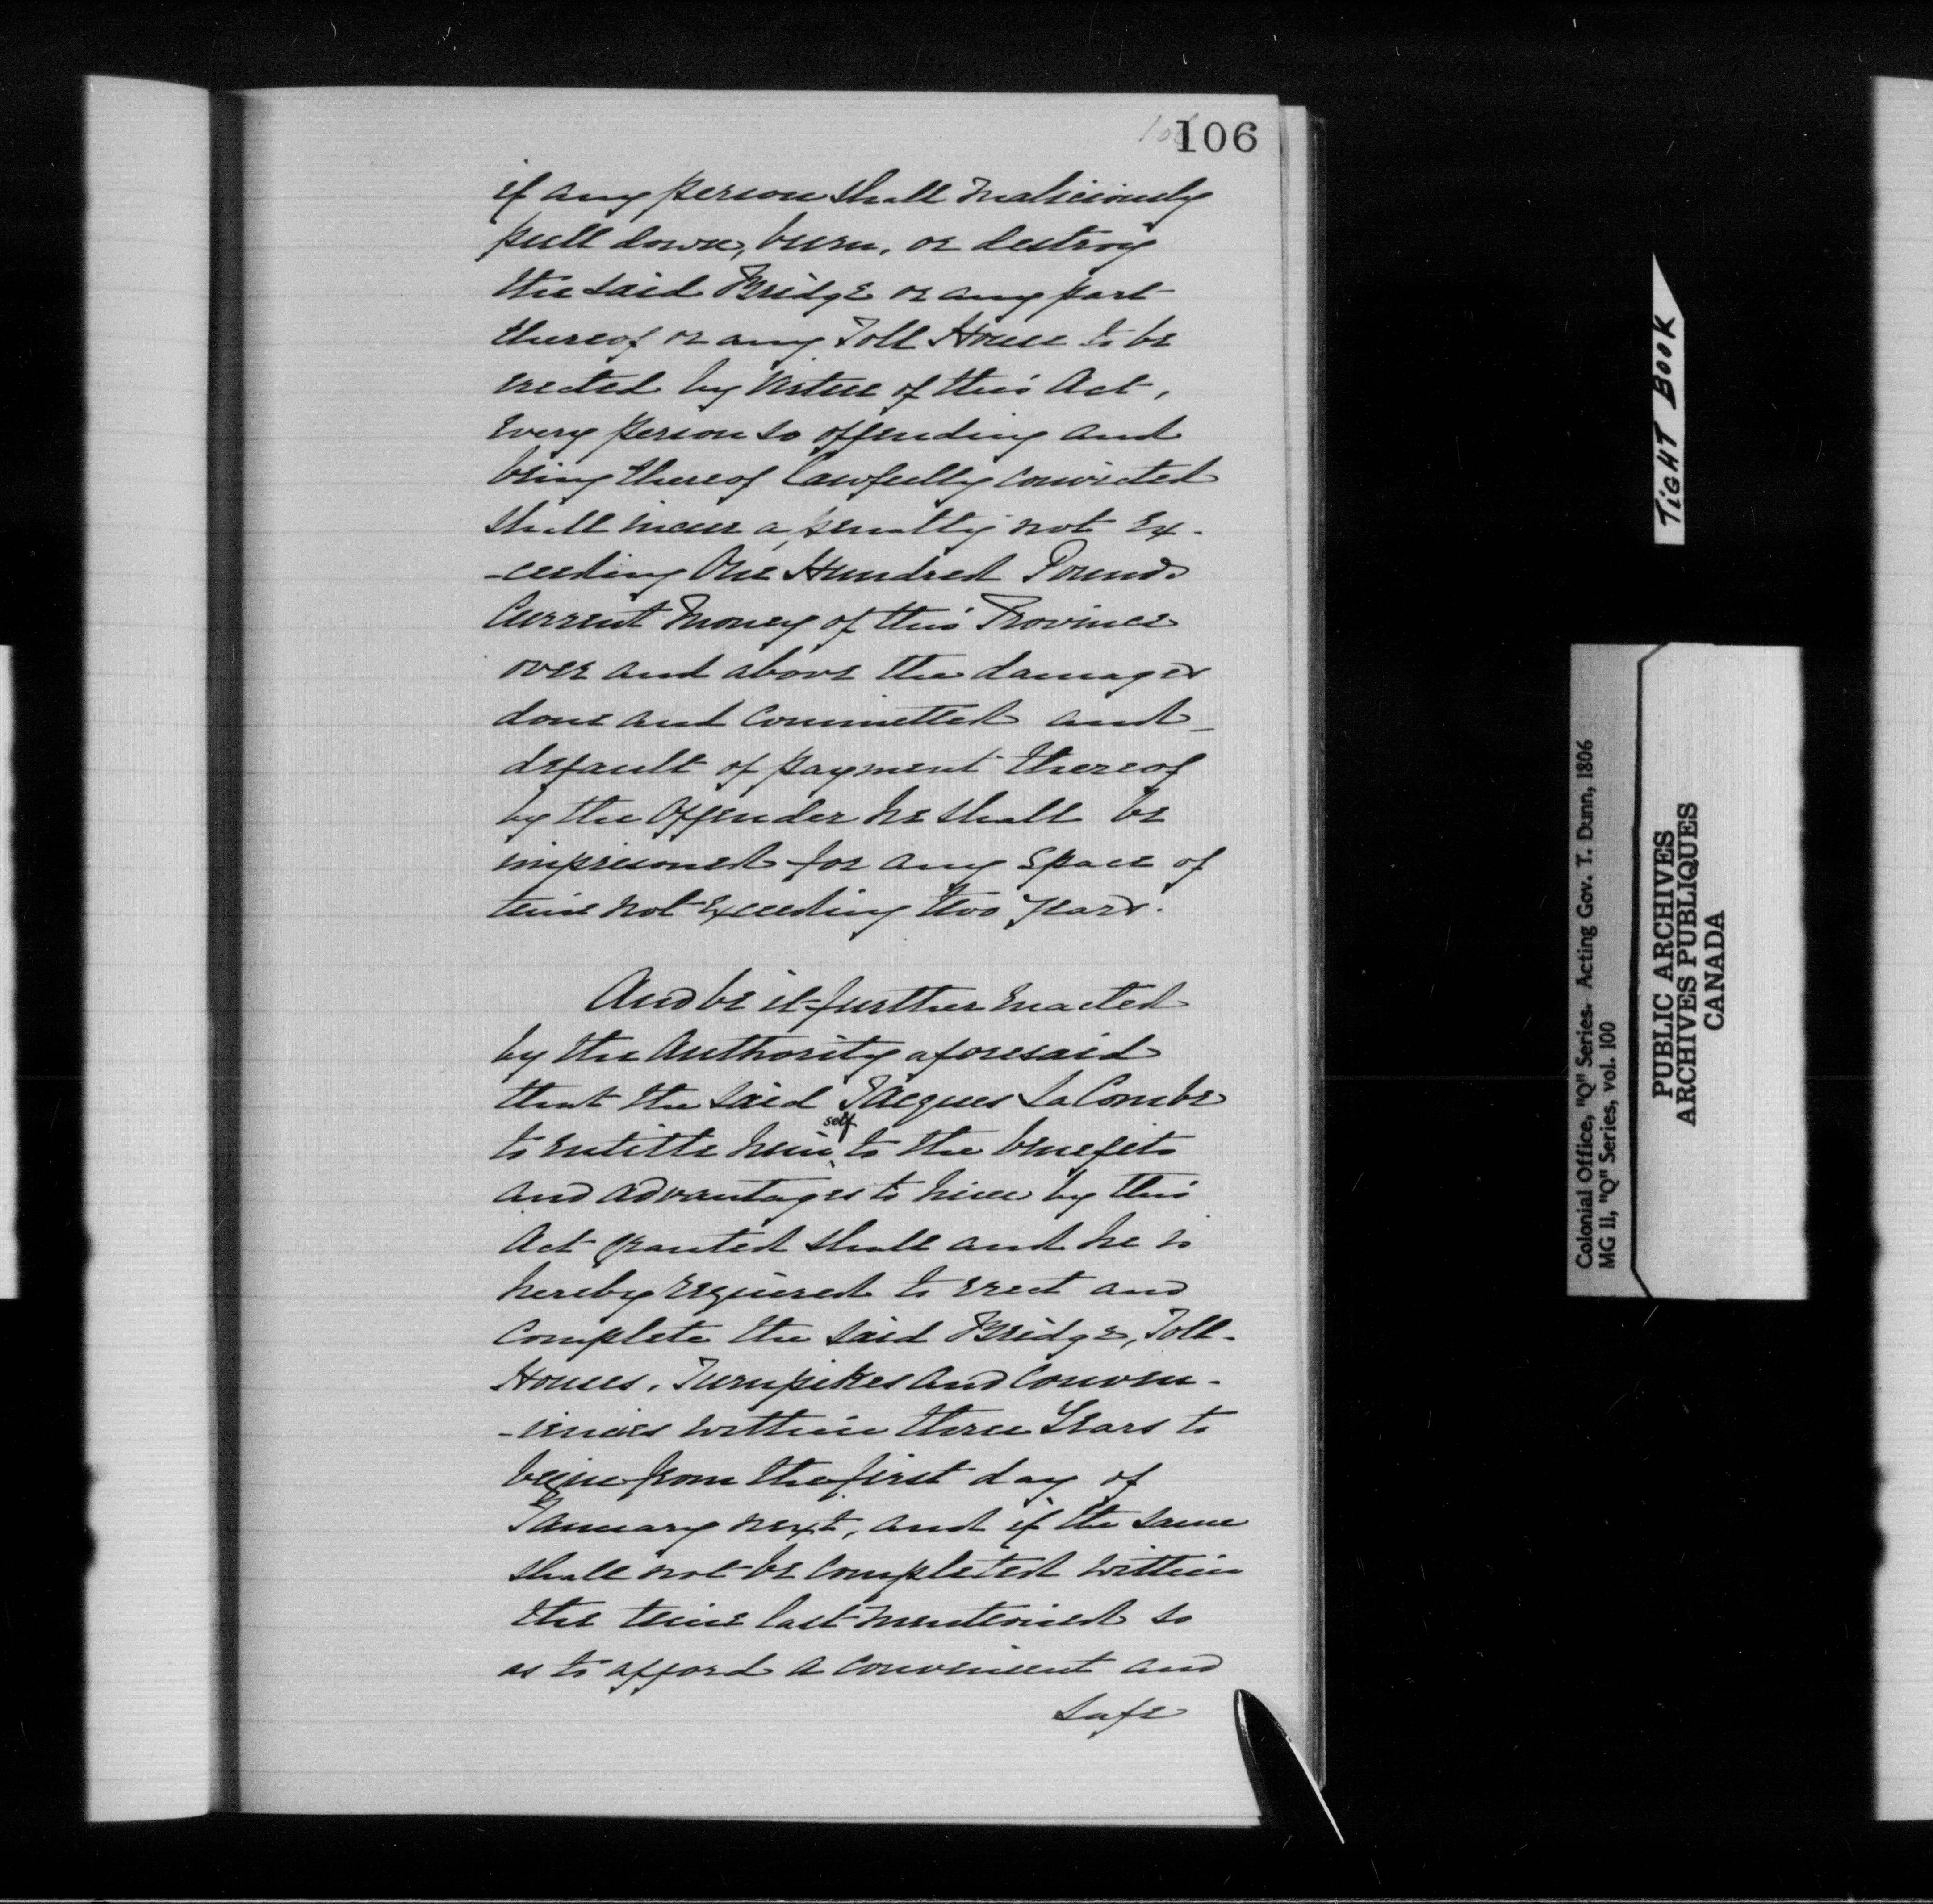 106
if any person shall maliciously
pull down, burn, or destroy
the said Bridge or any part
thereof or any Toll House to be
erected by virtue of this Act,
every person so offending and
being thereof lawfully convicted
shall incur a penalty not ex-
-ceeding One Hundred Pounds
Current Money of this Province
over and above the damages
done and committed and
default of payment thereof
by the Offender he shall be
imprisoned for any space of
time not exceeding two years.
And be it further enacted
by the Authority aforesaid
that the said Jacques LaCombe
to entitle him self to the benefits
and advantages to him by this
Act granted shall and he is
hereby required to erect and
complete the said Bridge, Toll-
Houses, Turnpikes and Conven-
-iences within three Years to
begin from the first day of
January next, and if the same
shall not be completed within
the time last mentioned so
as to afford a convenient and
safe
TIGHT BOOK
Colonial Office, "Q" Series. Acting Gov. T. Dunn, 1806
MG 11, "Q" Series, vol. 100
PUBLIC ARCHIVES
ARCHIVES PUBLIQUES
CANADA